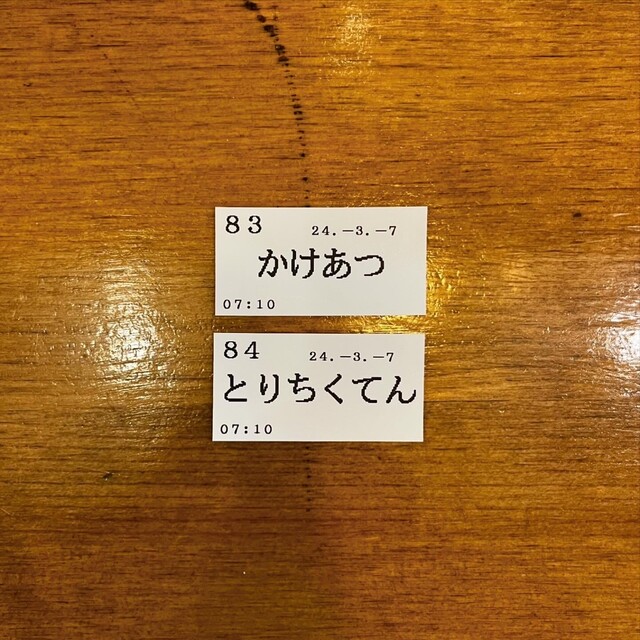 83
24.-3.-7
かけあつ
07:10
84
24.-3.-7
とりちくてん
07:10